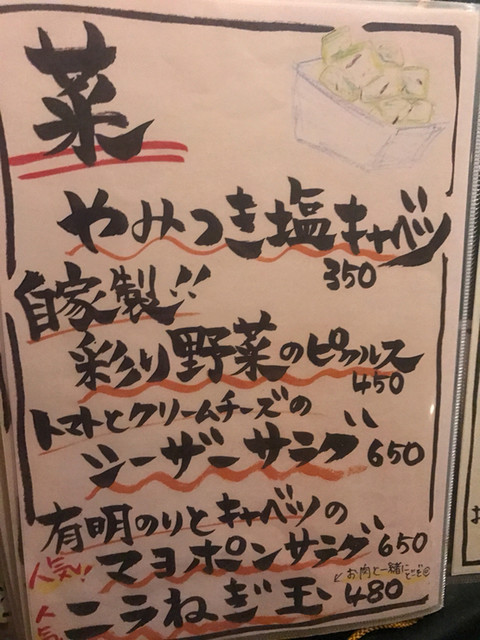 菜
やみつき塩キャベツ
350
自家製!!
彩り野菜のピクルス
450
トマトとクリームチーズの
シーザーサラダ 650
有明のりとキャベツの
人気!! マヨポンサラダ 650
お肉と一緒にどーぞ
人気 ニラねぎ玉 480